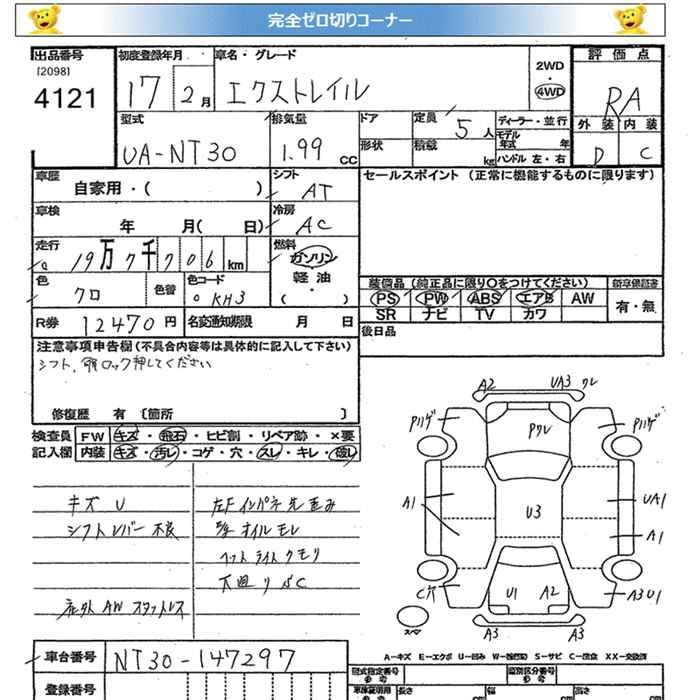 完全ゼロ切りコーナー
出品番号 初度登録年月 車名・グレード 2WD 評価点
[2098]
4121 17 2月 エクストレイル 4WD RA
型式 排気量 ドア 定員 5人 ディーラー・並行 外装 内装
モデル年式 年
UA-NT30 1.99 CC 形状 積載 kg ハンドル 左・右 D C
車歴 自家用・( ) シフト AT セールスポイント(正常に機能するものに限ります)
車検 年 月( 日) 冷房 AC
走行 19万7千706km 燃料 ガソリン
軽油
・( )
色 クロ 色替 色コード KH3 装備品(純正品に限り○をつけてください) 新車保証書
PS PW ABS エアB AW 有・無
R券 12470円 名変通知期限 月 日 SR ナビ TV カワ
注意事項申告欄(不具合内容等は具体的に記入して下さい) 後日品
シフト ロック押してください
修復歴 有 〔箇所 〕
検査員 FW キズ・飛石・ヒビ割・リペア跡・×要
記入欄 内装 キズ・汚レ・コゲ・穴・スレ・キレ・破レ
キズ U
シフトレバー不良
社外AWスタットレス
左Fインパネ先歪み
オイルモレ
ヘットライトクモリ
下廻りSC
A2 UA3 クレ
Pハゲ Pクレ Pハゲ
A1 U3 UA1
A1
C穴 U1 A2 A3U1
スペア A3 A3
A-キズ E-エクボ U-凹み S-サビ C-腐食 XX-交換済
車台番号 NT30-147297
型式指定番号 類別区分番号
登録番号 長さ 幅 高さ